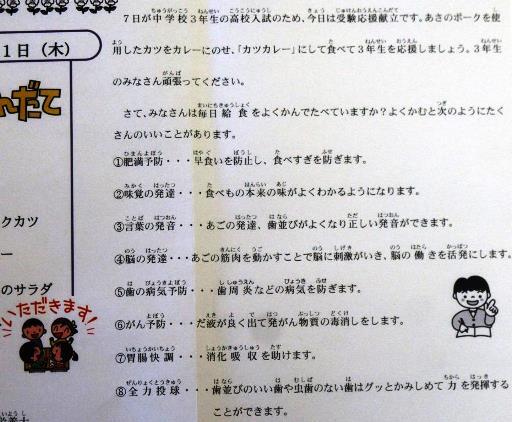 ７日が中学校３年生の高校入試のため、今日は受験応援献立です。あさのポークを使
用したカツをカレーにのせ、「カツカレー」にして食べて３年生を応援しましょう。３年生
のみなさん頑張ってください。
さて、みなさんは毎日給食をよくかんでたべていますか？よくかむと次のようにたく
さんのいいことがあります。
①肥満予防・・・早食いを防止し、食べすぎを防ぎます。
②味覚の発達・・・食べもの本来の味がよくわかるようになります。
③言葉の発音・・・あごの発達、歯並びがよくなり正しい発音ができます。
④脳の発達・・・あごの筋肉を動かすことで脳に刺激がいき、脳の働きを活発にします。
⑤歯の病気予防・・・歯周炎などの病気を防ぎます。
⑥がん予防・・・だ液が良く出て発がん物質の毒消しをします。
⑦胃腸快調・・・消化吸収を助けます。
⑧全力投球・・・歯並びのいい歯や虫歯のない歯はグッとかみしめて力を発揮する
ことができます。
1日（木）
んだて
クカツ
ー
のサラダ
いただきます!
栄養士